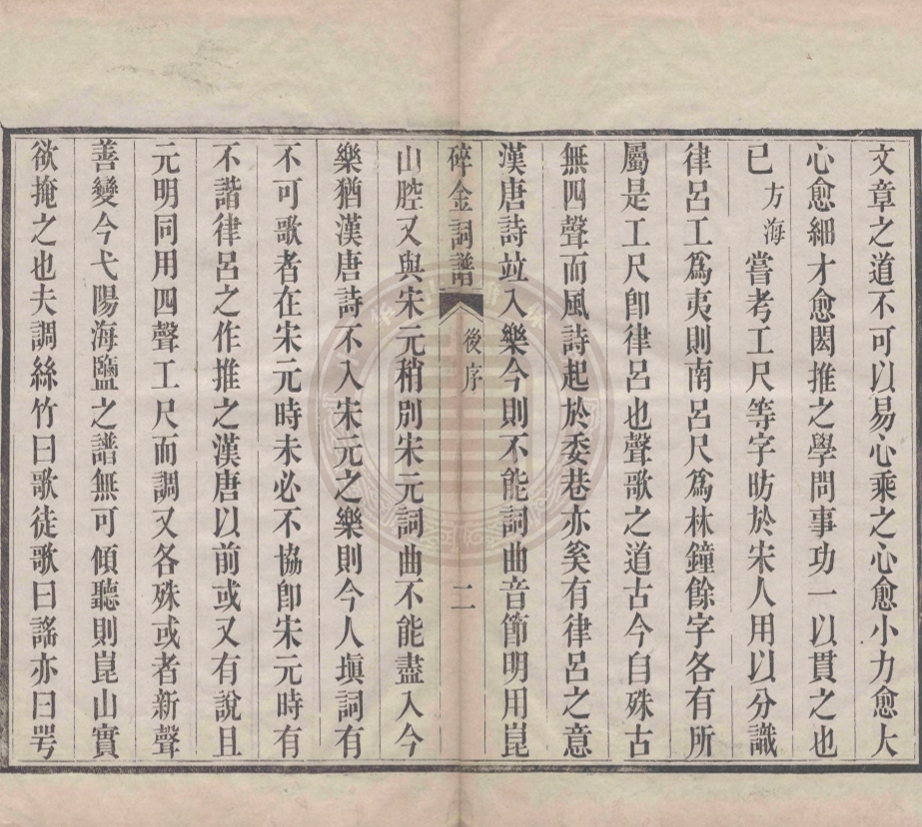 文章之道不可以易心乘之心愈小力愈大
心愈細才愈閎推之學問事功一以貫之也
已方海嘗考工尺等字昉於宋人用以分識
律呂工爲夷則南呂尺爲林鐘餘字各有所
屬是工尺卽律呂也聲歌之道古今自殊古
無四聲而風詩起於委巷亦奚有律呂之意
漢唐詩竝入樂今則不能詞曲音節明用崑
碎金詞譜 後序 二
山腔又與宋元稍別宋元詞曲不能盡入今
樂猶漢唐詩不入宋元之樂則今人塡詞有
不可歌者在宋元時未必不協卽宋元時有
不諧律呂之作推之漢唐以前或又有說且
元明同用四聲工尺而調又各殊或者新聲
善變今弋陽海鹽之譜無可傾聽則崑山實
欲掩之也夫調絲竹曰歌徒歌曰謠亦曰咢